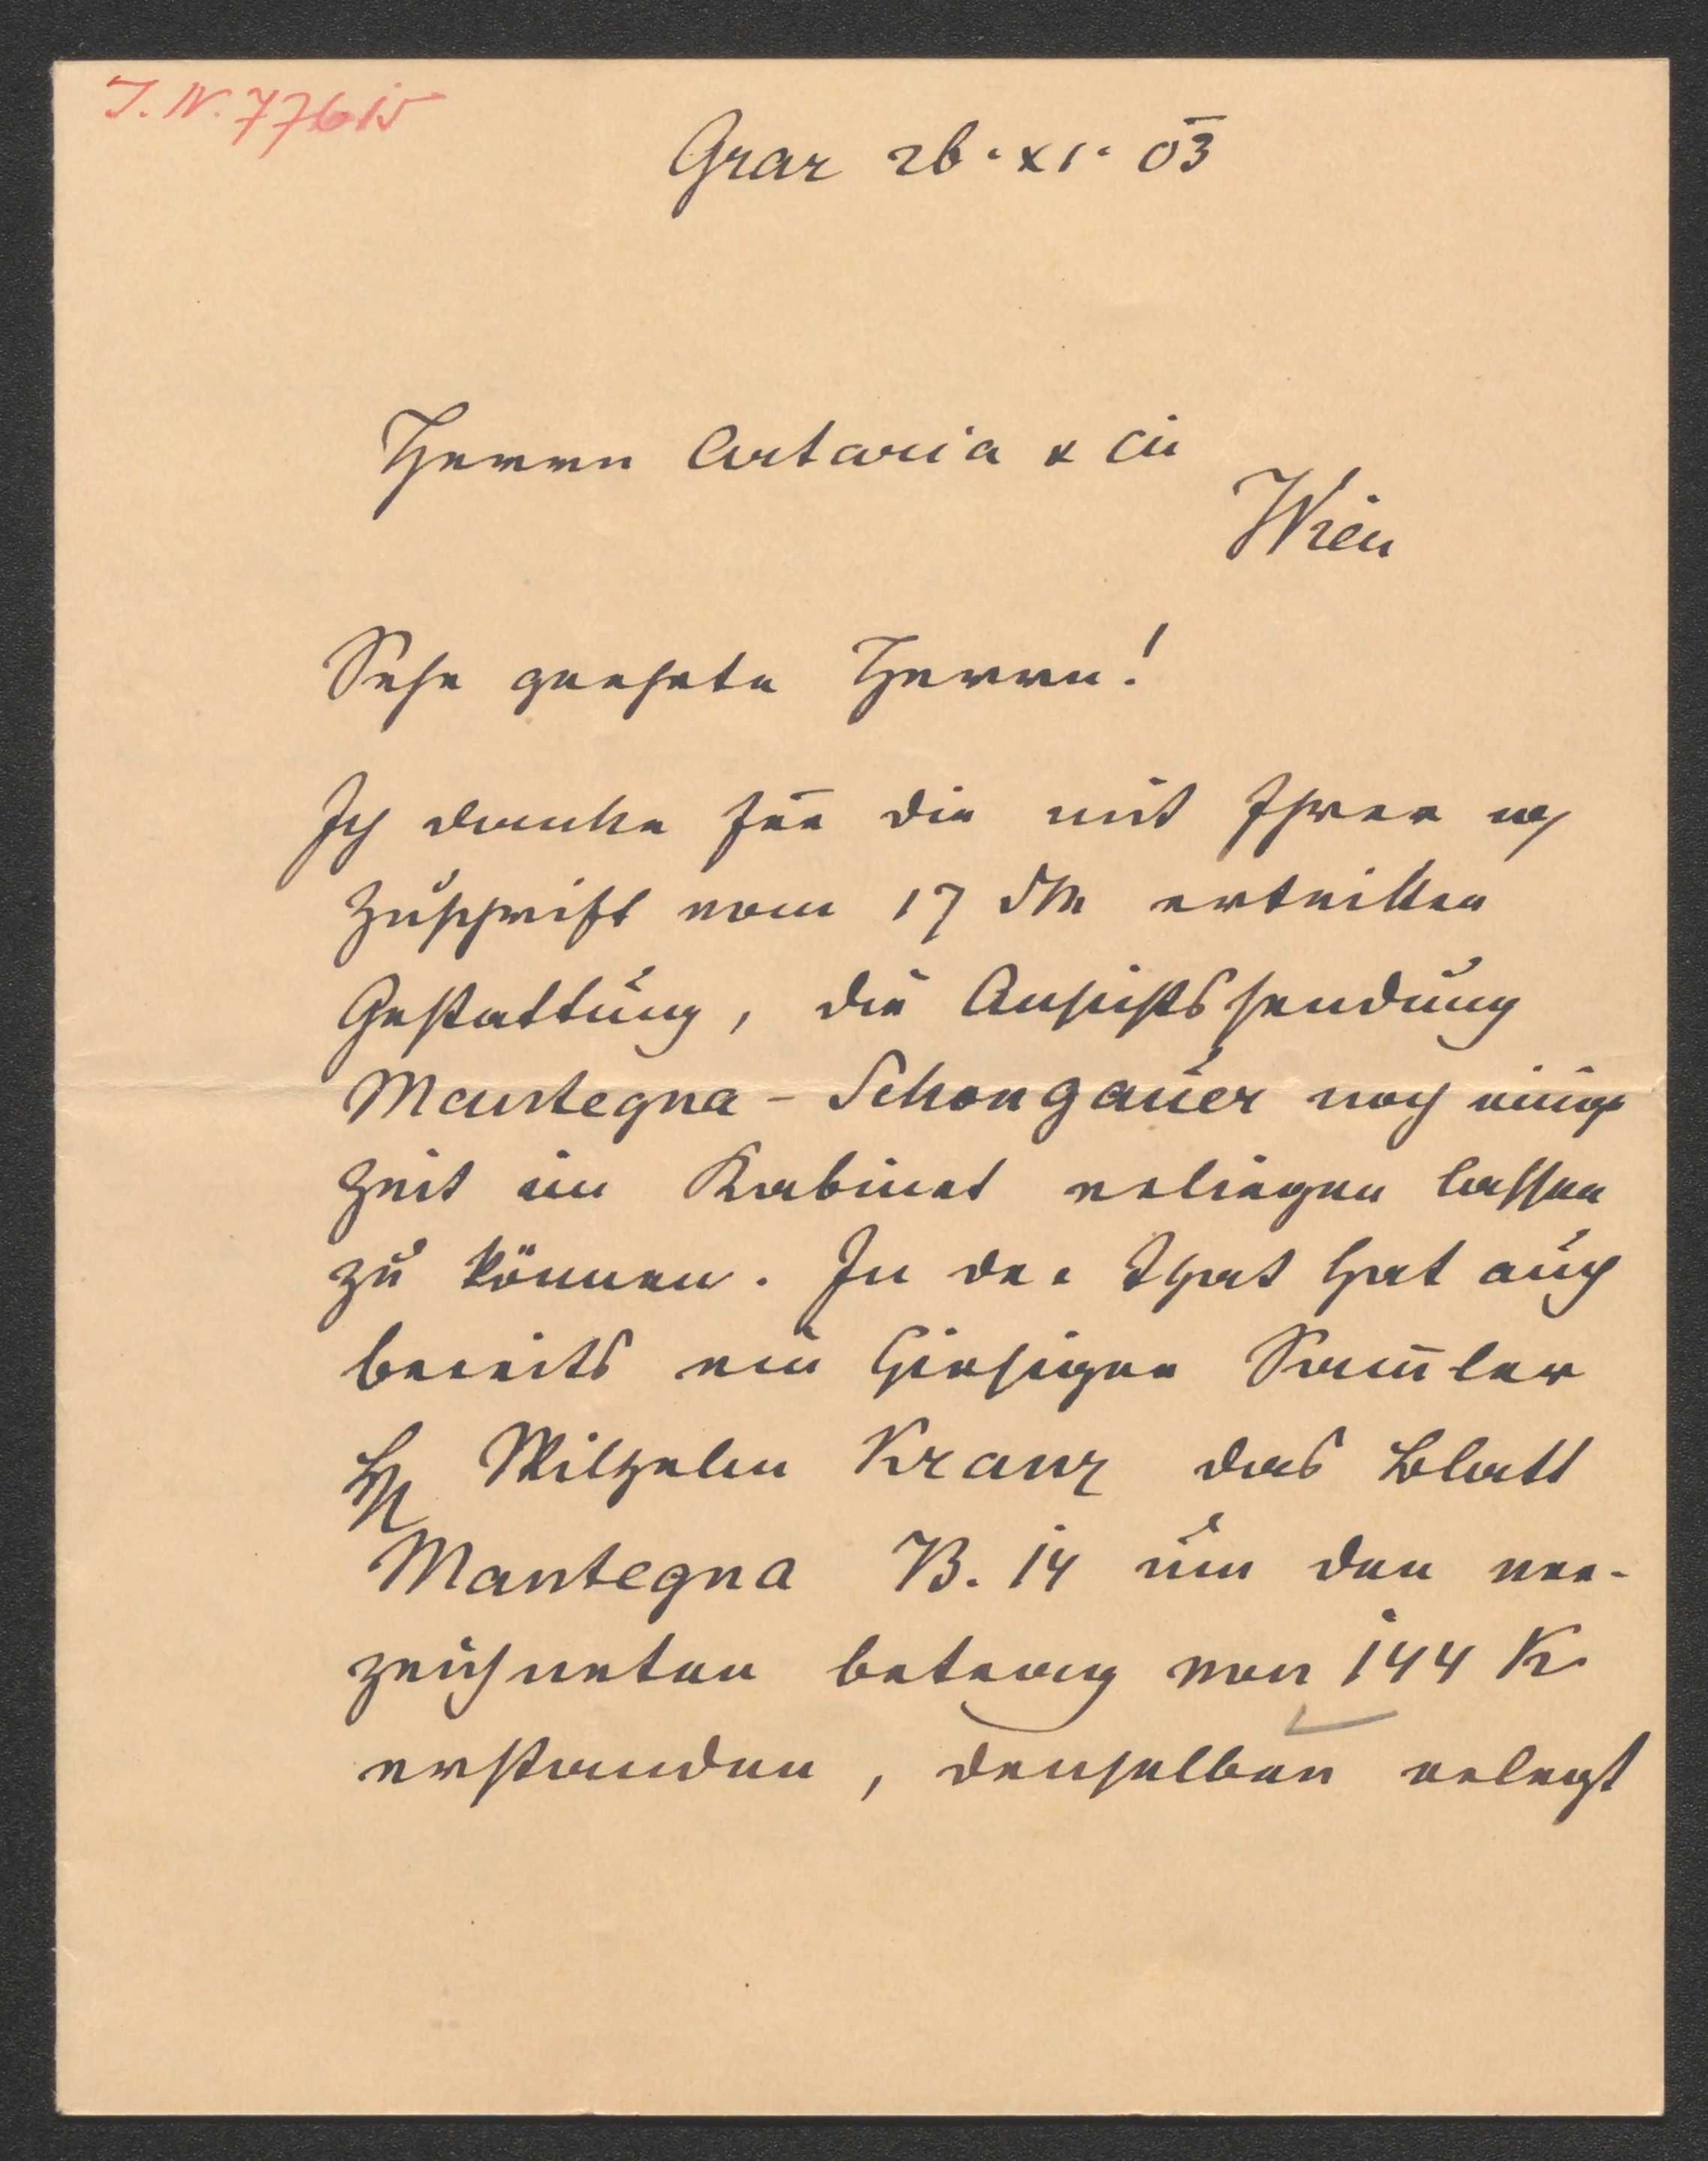 J. N. 77615
Graz 26. XI. 03
Herren Artaria & Cie
Wien
Sehr geehrte Herren!
Ich danke für die mit Ihrer
Zuschrift vom 17 d M erteilten
Gestattung, die Ansichtssendung
Mantegna - Schongauer noch einige
Zeit im Kabinet erliegen lassen
zu können. In der That hat auch
bereits ein hiesiger Sam̅ler
H Wilhelm Kranz das Blatt
Mantegna B. 14 um den ver-
zeichneten betrag von 144 K
erstanden, denselben erlegt